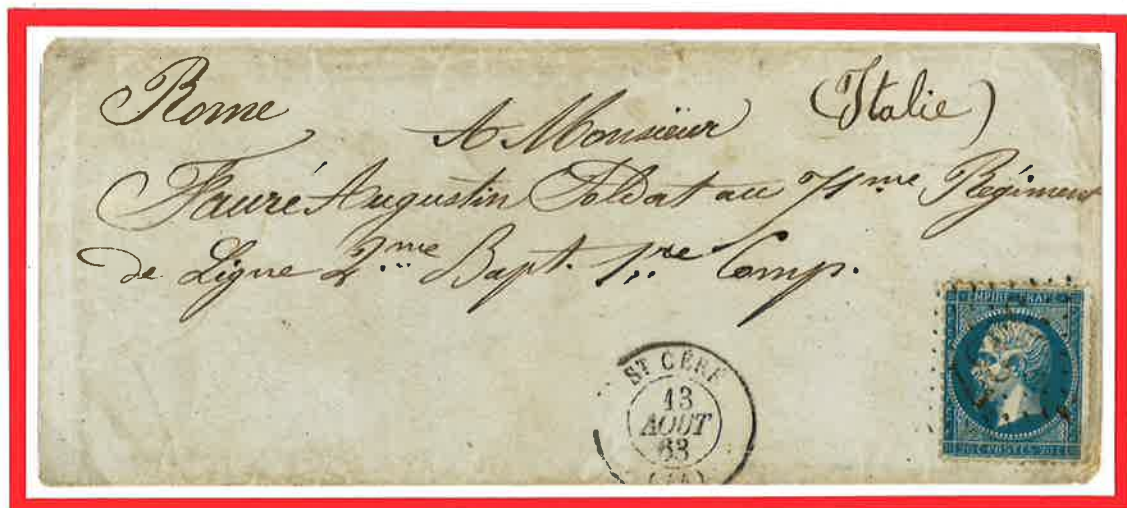 Rome (Italie)
A Monsieur
Fauré Augustin Soldat au 71me Régiment
de Ligne 2me Bapt. 1re Comp.
ST CÉRÉ
13
AOUT
63
EMPIRE FRANC
20 C POSTES 20 C